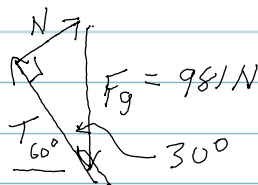 N
Fg = 981 N
T
60°
30°